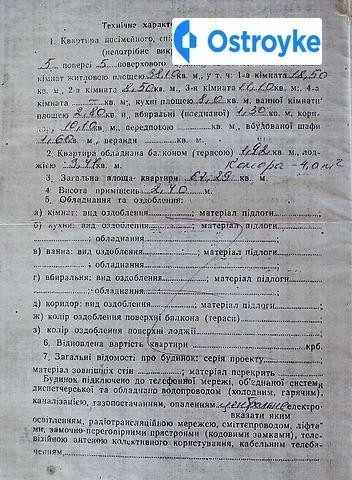 Технічне характе
Ostroyke
1. Квартира посімейного, спі
(непотрібне вик
5 поверсі 5 поверхового
кімнат житловою площею 38,10 кв. м, у т. ч: 1-а кімната 18,50
кв. м, 2-а кімната 8,50 кв. м, 3-я кімната 11,10 кв. м; 4-а
кімната — кв. м, кухні площею 8,0 кв. м, ванної кімнати
площею 2,80 кв. м, вбиральні (поєднаної) 1,30 кв. м, кори-
дору 10,10 кв. м, передпокою кв. м, вбудованої шафи
кв. м, веранди кв. м.
2. Квартира обладнана балконом (терасою) кв. м, лод-
жією кв. м. Комора -
3. Загальна площа квартири 61,29 кв. м.
4. Висота приміщень 2,40 м.
5. Обладнання та оздоблення:
а) кімнати: вид оздоблення; матеріал підлоги
б) кухні: вид оздоблення; матеріал підлоги
; обладнання
в) ванна: вид оздоблення; матеріал підлоги
; обладнання
г) вбиральня: вид оздоблення; матеріал підлоги
; обладнання
д) коридор: вид оздоблення; матеріал підлоги
ж) колір оздоблення поверхні балкона (тераси)
з) колір оздоблення поверхні лоджії
6. Відновлена вартість квартири крб.
7. Загальні відомості про будинок: серія проекту
матеріал зовнішніх стін; матеріал перекрить
Будинок підключено до телефонної мережі, об'єднаної систем
диспетчерської та обладнано водопроводом (холодним, гарячим),
каналізацією, газопостачанням, опаленням центральне електро-
вказати яким
освітленням, радіотрансляційною мережею, сміттєпроводом, ліфта
ми, замочно-переговорними пристроями (кодовими замками), теле-
візійною антеною колективного користування, кабельним телеба-
ченням